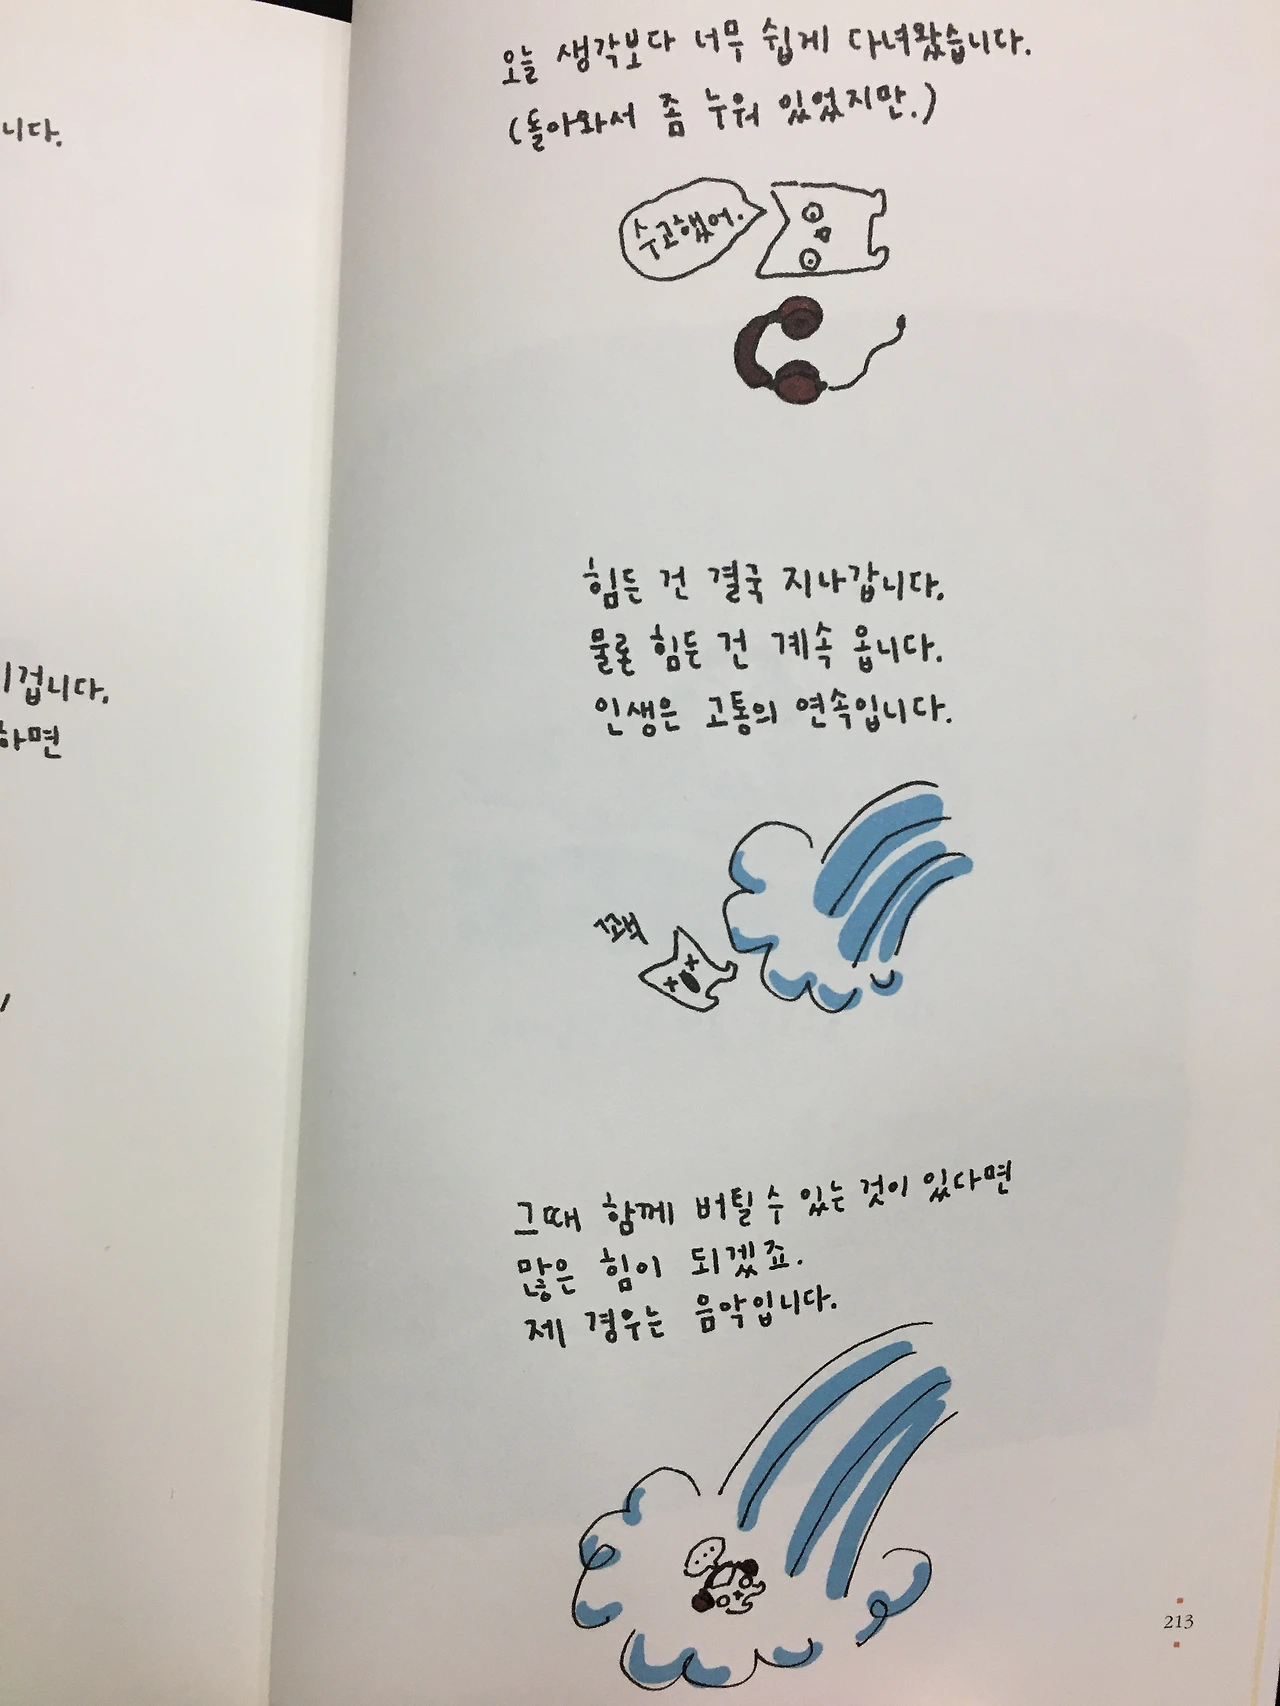 니다.
겁니다.
하면
오늘 생각보다 너무 쉽게 다녀왔습니다.
(돌아와서 좀 누워 있었지만.)
수고했어.
힘든 건 결국 지나갑니다.
물론 힘든 건 계속 옵니다.
인생은 고통의 연속입니다.
꼬넥
그때 함께 버틸 수 있는 것이 있다면
많은 힘이 되겠죠.
제 경우는 음악입니다.
213